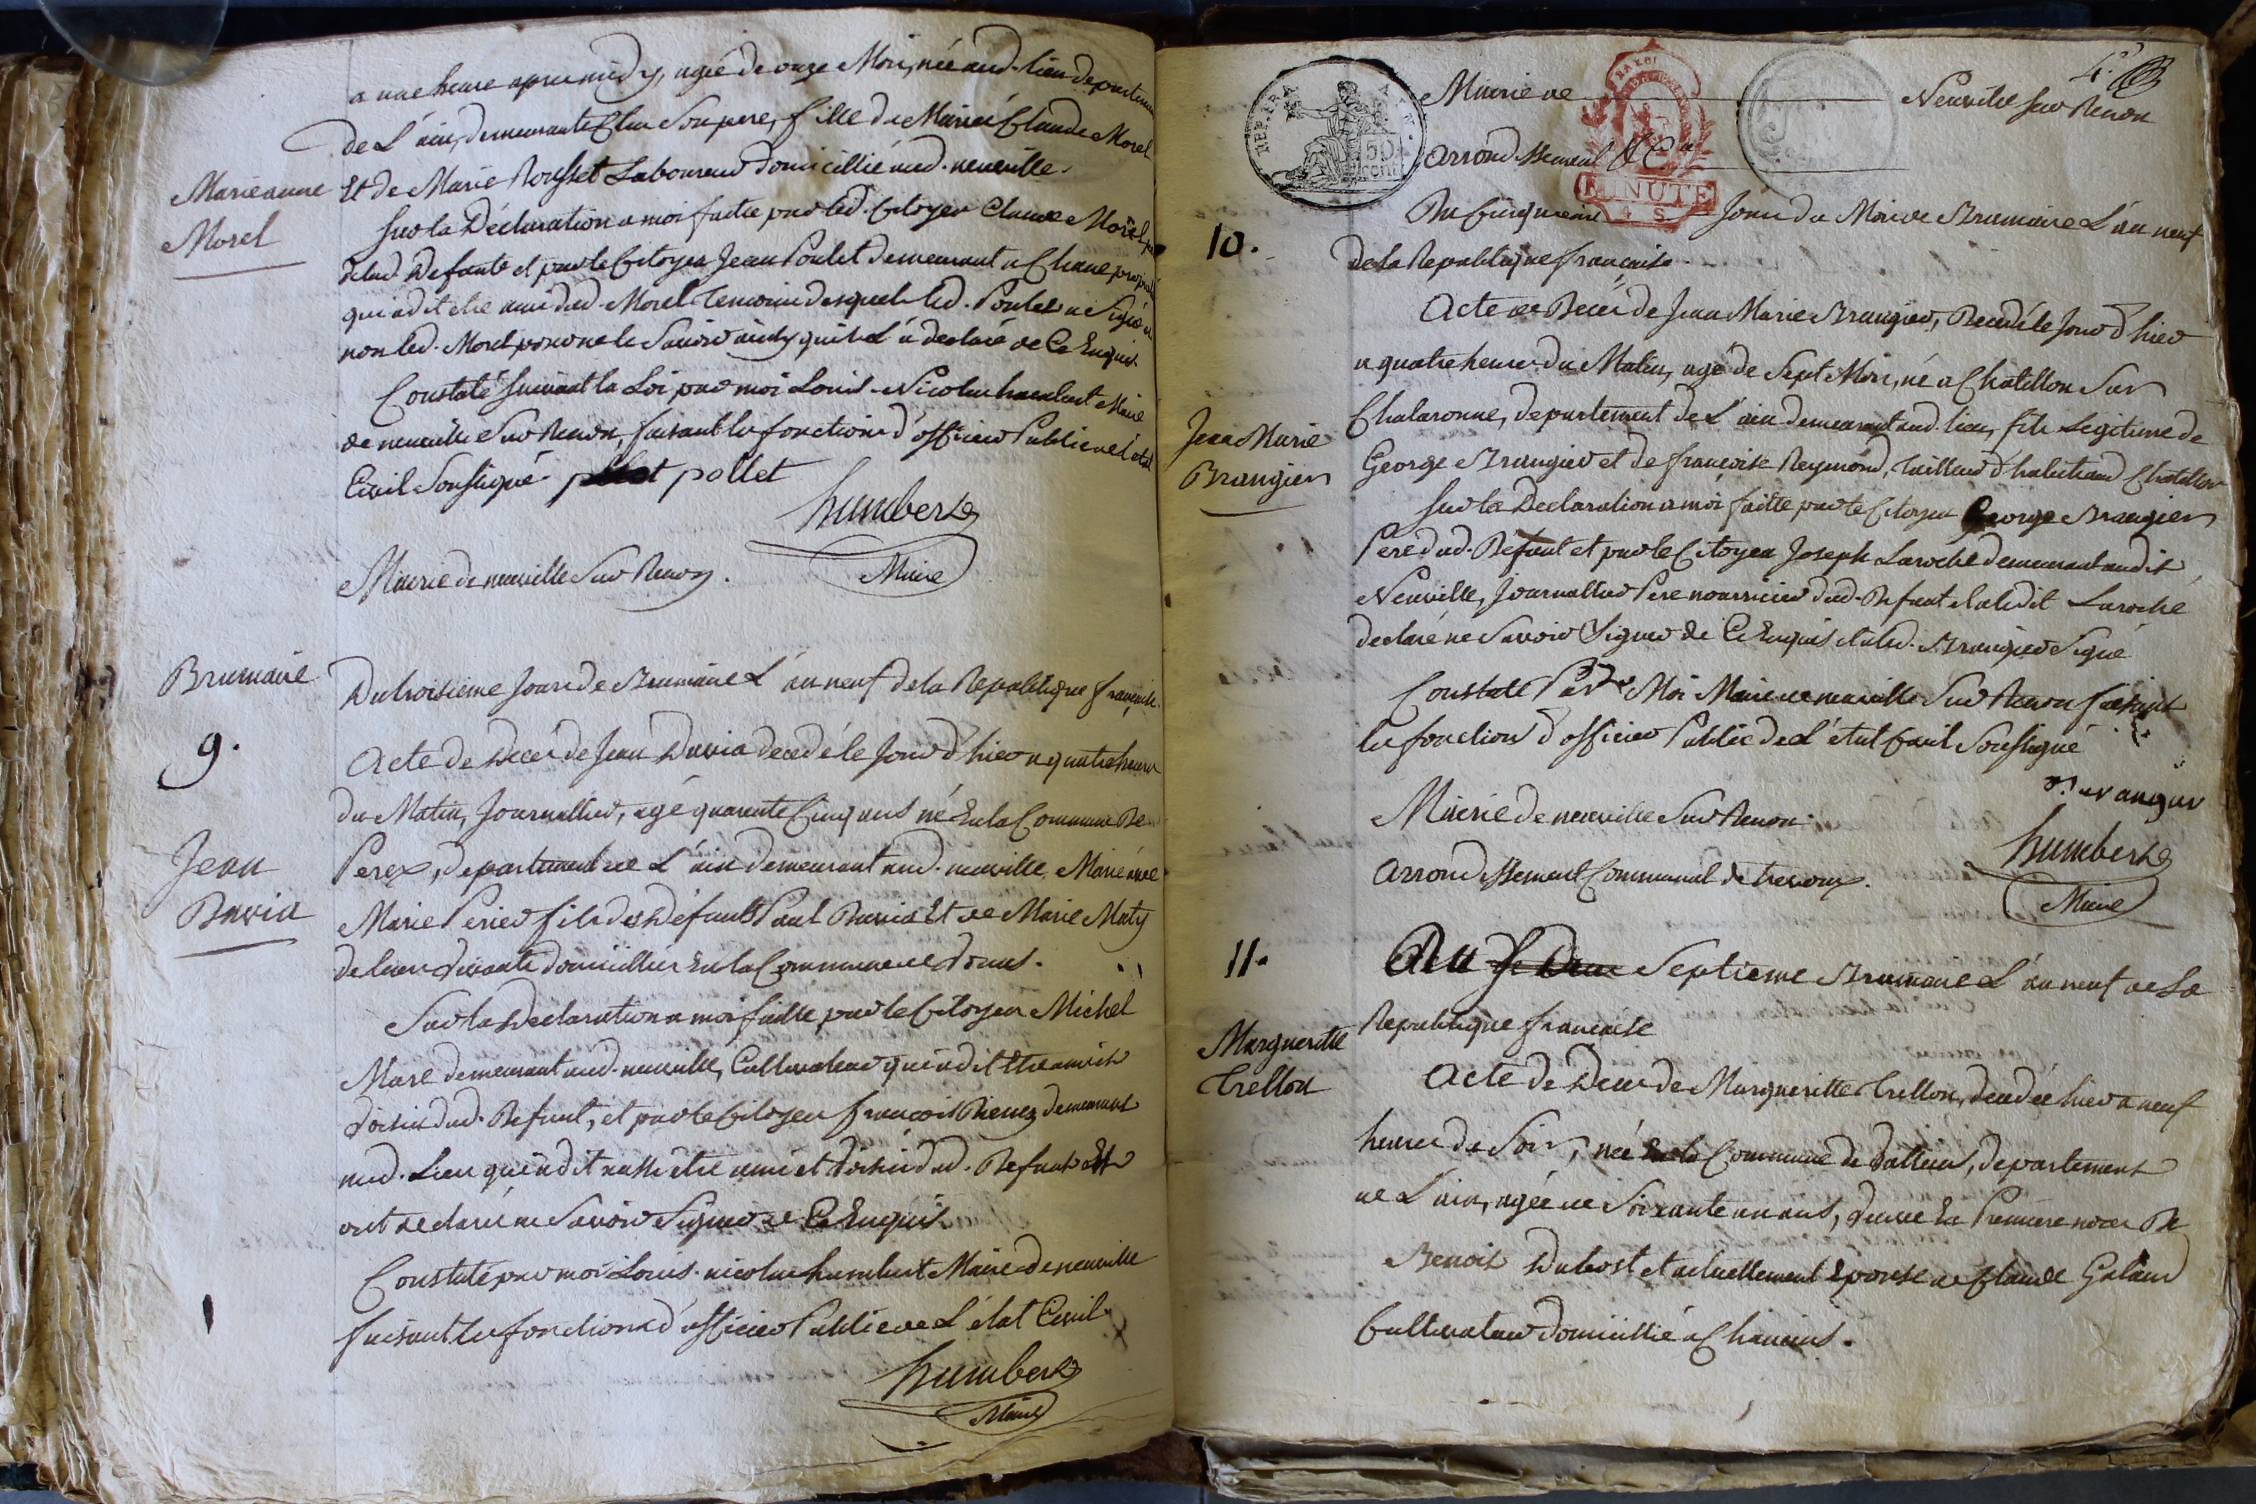 a une heure apres midy, agée de onze Mois, née aud. lieu departement
de L'ain, demeurante Chez Son pere, fille de Mariée Claude Morel
Et de Marie Rousset Laboureur domicillié aud. neuville.
Marieanne
Morel
Sur la Déclaration a moi faitte par led. Citoyen Claude Morel pere
delad. defunte et par le Citoyen Jean Poulet demeurant a Chane
qui a dit etre ami dud. Morel temoins desquels led. Poulet a Signé et
non led. Morel pour ne le Savoir ainsy quil L'a declaré de Ce Enquis.
Constaté Suivant la Loi par moi Louis Nicolas humbert Maire
de neuville Sur Renon, faisant les fonctions d'officier Public de l'état
Civil Soussigné pollet
humbert
Maire
Mairie de neuville Sur Renon.
Brumaire
Du troisieme Jour de Brumaire L'an neuf de la Republique française.
9.
Acte de Decès de Jean Duvia decedé le Jour d'hier a quatre heures
du Matin, Journallier, agé quarante Cinq ans né En la Commune De
Jean
Duvia
Perex, departement de L'ain demeurant aud. neuville, Marié avec
Marie Perier fils des Défunts Paul Duvia Et de Marie Maty
de leur vivants domicilliés En la Commune de
Sur la Déclaration a moi faitte par le Citoyen Michel
Mare demeurant aud. neuville, Cultivateur qui a dit Etre ami et
Voisin dud. Defunt, et par le Citoyen françois demeurant
aud. Lieu qui a dit aussi être ami et Voisin dud. Defunt
ont declaré ne Savoir Signer de Ce Enquis.
Constaté par moi Louis nicolas humbert Maire de neuville
faisant les fonctions d'officier Public de L'état Civil.
humbert
Maire
4.e
REP. FRA.
50
cent.
MINUTE
Mairie de Neuville Sur Renon
arrondissement
10.
Du Cinquieme Jour du Mois de Brumaire L'an neuf
de la Republique française.
Acte de Decès de Jean Marie Brangier, Decedé le Jour d'hier
a quatre heures du Matin, agé de Sept Mois, né a Chatillon Sur
Jean Marie
Brangier
Chalaronne, departement de L'ain demeurant aud. lieu, fils Legitime de
George Brangier et de françoise Reymond, tailleur d'habits aud. Chatillon
Sur la Declaration a moi faitte par le Citoyen George Brangier
Pere dud. Défunt et par le Citoyen Joseph Laroche demeurant audit
Neuville, Journallier Pere nourricier dud. Defunt Laroche
declaré ne Savoir Signer de Ce Enquis Brangier Signé
Constaté Par Moi Maire de neuville Sur Renon faisant
les fonctions d'officier Public de L'état Civil Soussigné
Brangier
humbert
Maire
Mairie de neuville Sur Renon.
arrondissement Communal de trevoux.
11.
Du Septieme Brumaire L'an neuf de La
Republique française
Margueritte
Trellon
Acte de Decès de Margueritte Trellon, decedée hier a neuf
heures du Soir, née En la Commune de Dalleins, departement
de L'ain, agée de Soixante un ans, Veuve En Premiere noces De
Benoit Dubost et actuellement Epouse de Claude Galand
Cultivateur domicillié a Chaneins.